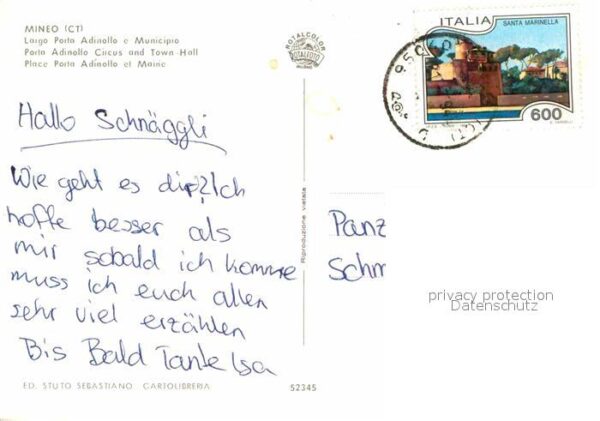 MINEO (CT)
Largo Porta Adinolfo e Municipio
Porta Adinolfo Circus and Town-Hall
Place Porta Adinolfo et Mairie
ROTALCOLOR
ROTALFOTO
MILANO
ITALIA
SANTA MARINELLA
600
Hallo Schnäggli
Wie geht es dir? Ich
hoffe besser als
mir sobald ich komme
muss ich euch allen
sehr viel erzählen
Bis Bald Tante Isa
Riproduzione vietata
Panz
Schm
privacy protection
Datenschutz
ED. STUTO SEBASTIANO CARTOLIBRERIA
52345